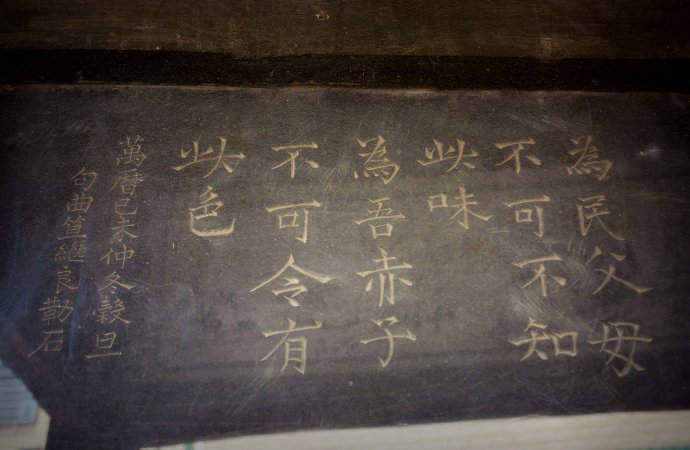 為民父母
不可不知
此味
為吾赤子
不可令有
此色
萬曆己未仲冬穀旦
句曲笪繼良勒石